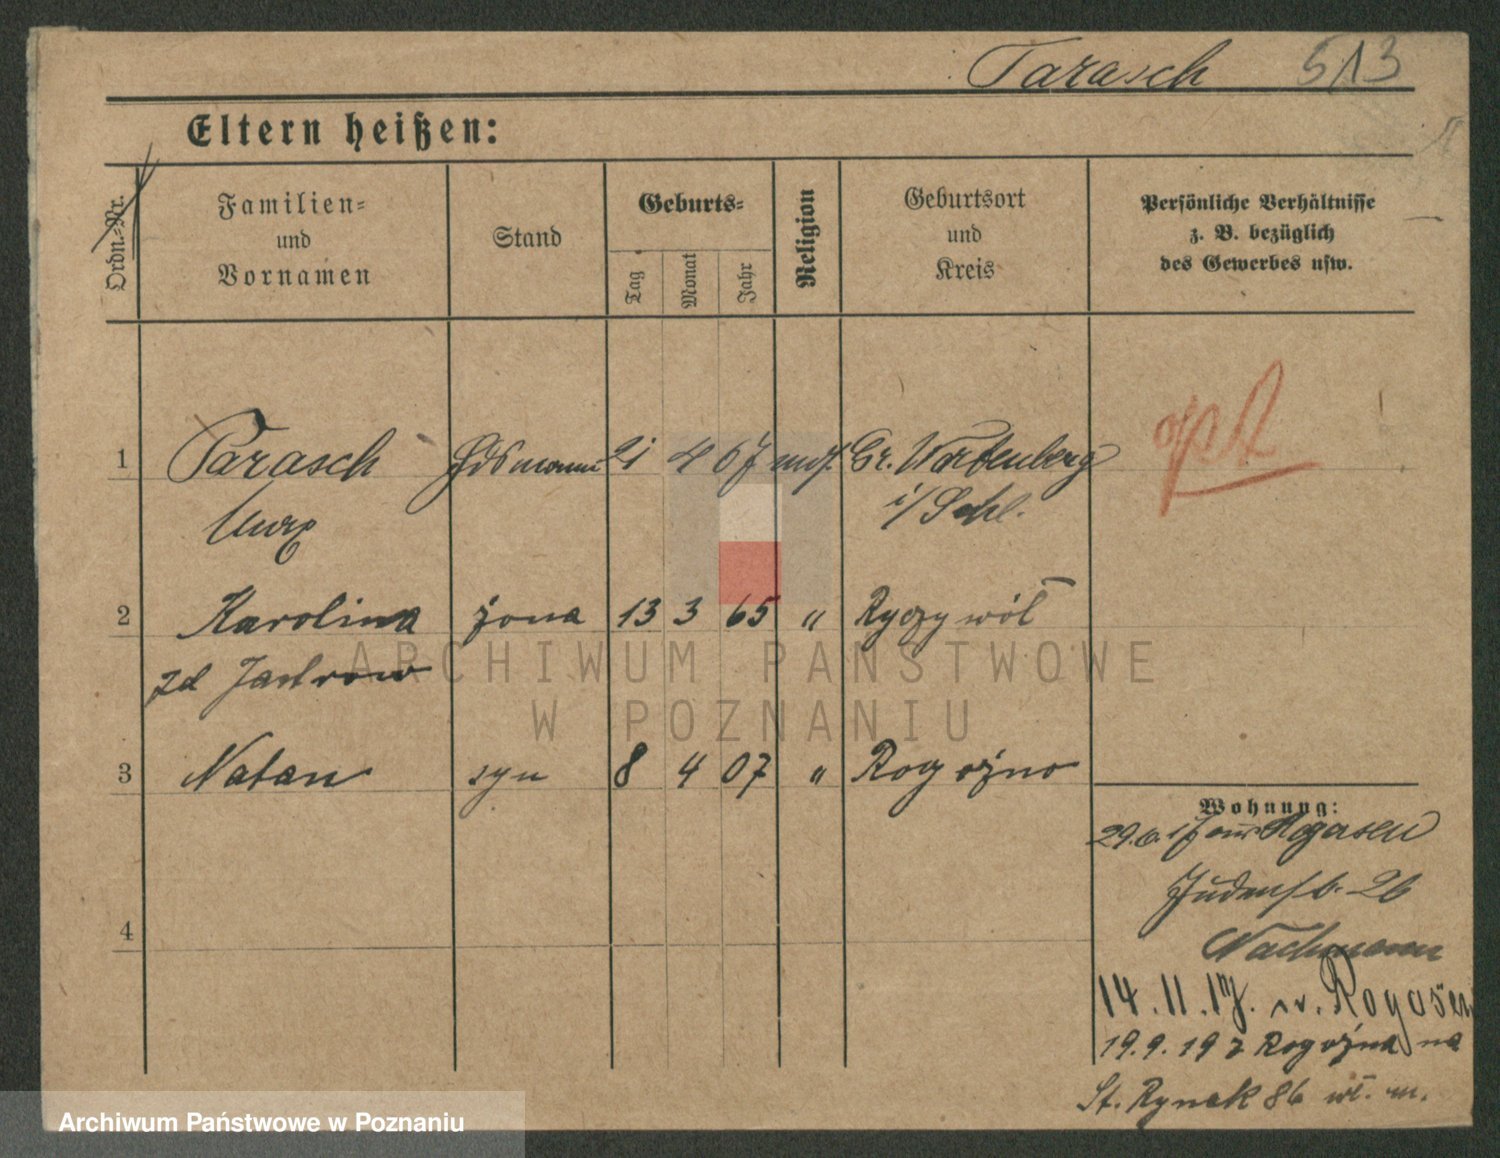 Tarasch 513
Eltern heißen:
Ordn.-Nr.
Familien-
und
Vornamen
Stand
Geburts-
Tag
Monat
Jahr
Religion
Geburtsort
und
Kreis
Persönliche Verhältnisse
z. B. bezüglich
des Gewerbes usw.
1 Tarasch Hdsmann 21 4 67 mos. Gr. Wartenberg
Max i/Schl.
2 Karolina żona 13 3 65 " Ryczywół
zd Jastrow
3 Natan syn 8 4 07 " Rogoźno
4
Wohnung:
29.6.17 aus Rogasen
Judenstr. 26
Nachmann
14.11.17. n. Rogasen
19.9.19 z Rogoźna na
St. Rynek 86 wł. m.
ARCHIWUM PAŃSTWOWE
W POZNANIU
Archiwum Państwowe w Poznaniu